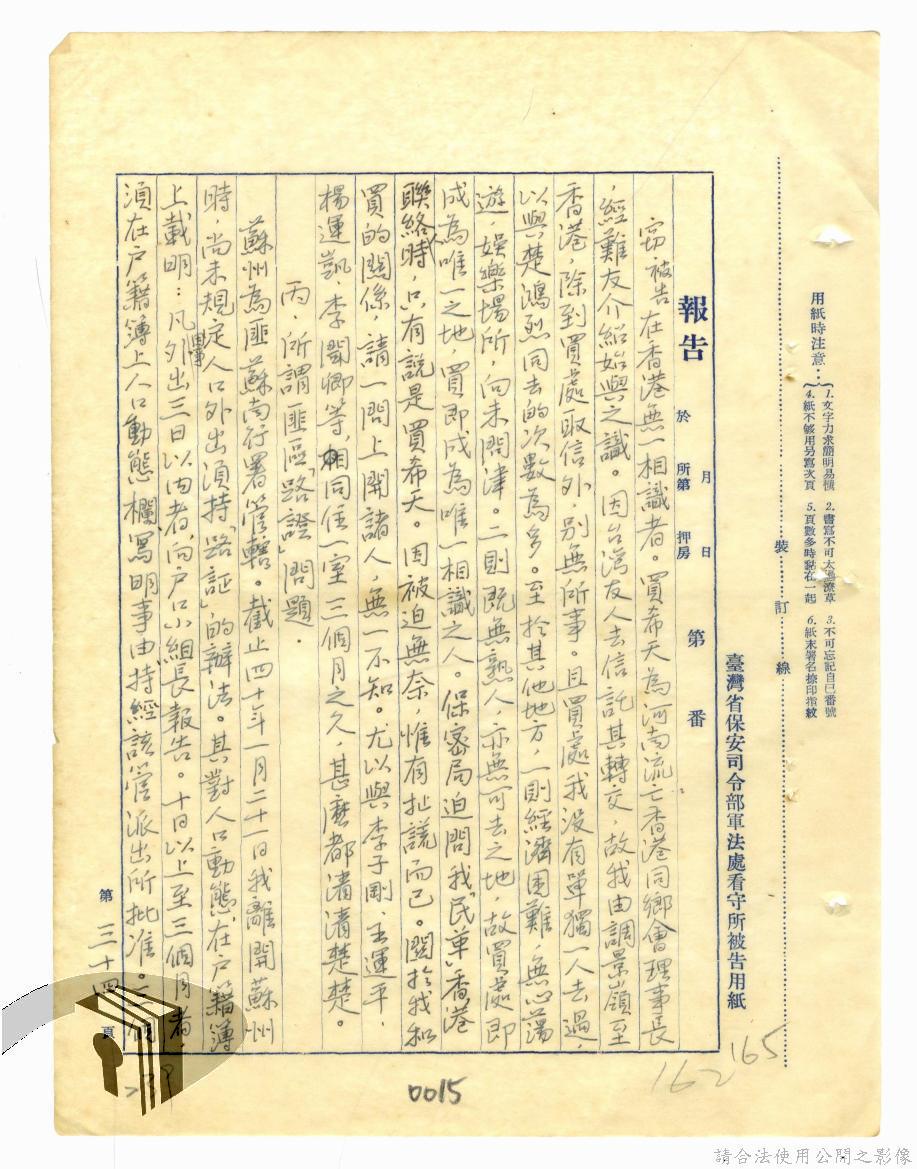 用紙時注意：
1.文字力求簡明易懂　2.書寫不可太過潦草　3.不可忘記自己番號
4.紙不够用另寫次頁　5.頁數多時黏在一起　6.紙末署名捺印指紋
裝訂線
臺灣省保安司令部軍法處看守所被告用紙
報告　於　月　日　所第　押房　第　番
竊被告在香港無一相識者。買希天為河南流亡香港同鄉會理事長
，經難友介紹始與之識。因台灣友人去信託其轉交，故我由調景嶺至
香港，除到買處取信外，別無所事。且買處我没有單獨一人去過，
以與楚鴻烈同去的次數為多。至於其他地方，一則經濟困難，無心蕩
遊，娛樂場所，向未問津。二則既無熟人，亦無可去之地，故買處即
成為唯一之地，買即成為唯一相識之人。保密局迫問我「民革」香港
聯絡時，只有說是買希天。因被迫無奈，惟有扯謊而已。關於我和
買的關係，請一問上開諸人，無一不知。尤以與李子剛、王運平、
楊運凱、李聞卿等，相同住一室三個月之久，甚麽都清清楚楚。
丙、所謂匪區「路證」問題．
蘇州為匪蘇南行署管轄。截止四十年一月二十一日我離開蘇州
時，尚未規定人口外出須持「路証」的辦法。其對人口動態，在户籍簿
上載明：凡因事外出三日以内者，向户口小組長報告。十日以上至三個月者，
須在户籍簿上人口動態欄，寫明事由，持經該管派出所批准。三個
第三十四頁
0015
162
165
請合法使用公開之影像